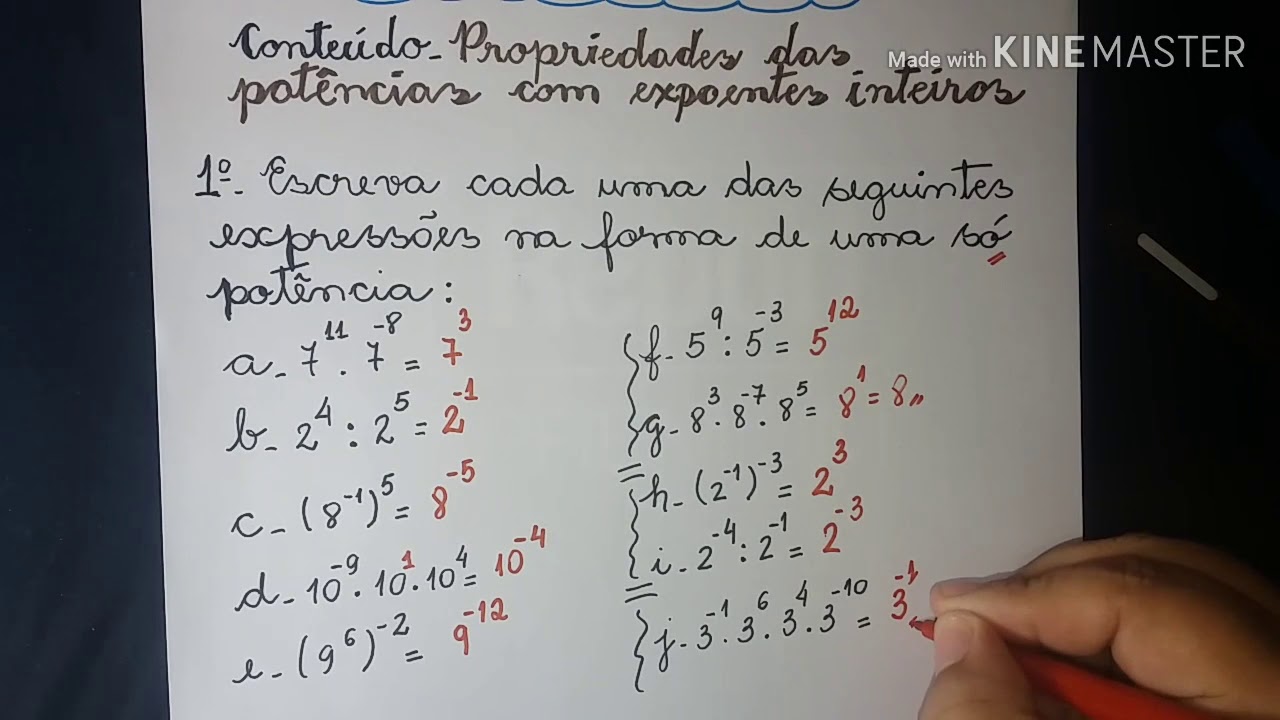 Conteúdo - Propriedades das
potências com expoentes inteiros
Made with KINEMASTER
1º - Escreva cada uma das seguintes
expressões na forma de uma só
potência:
a - 7¹¹ . 7⁻⁸ = 7³
b - 2⁴ : 2⁵ = 2⁻¹
c - (8⁻¹)⁵ = 8⁻⁵
d - 10⁻⁹ . 10¹ . 10⁴ = 10⁻⁴
e - (9⁶)⁻² = 9⁻¹²
f - 5⁹ : 5⁻³ = 5¹²
g - 8³ . 8⁻⁷ . 8⁵ = 8¹ = 8,,
h - (2⁻¹)⁻³ = 2³
i - 2⁻⁴ : 2⁻¹ = 2⁻³
j - 3⁻¹ . 3⁶ . 3⁴ . 3⁻¹⁰ = 3⁻¹